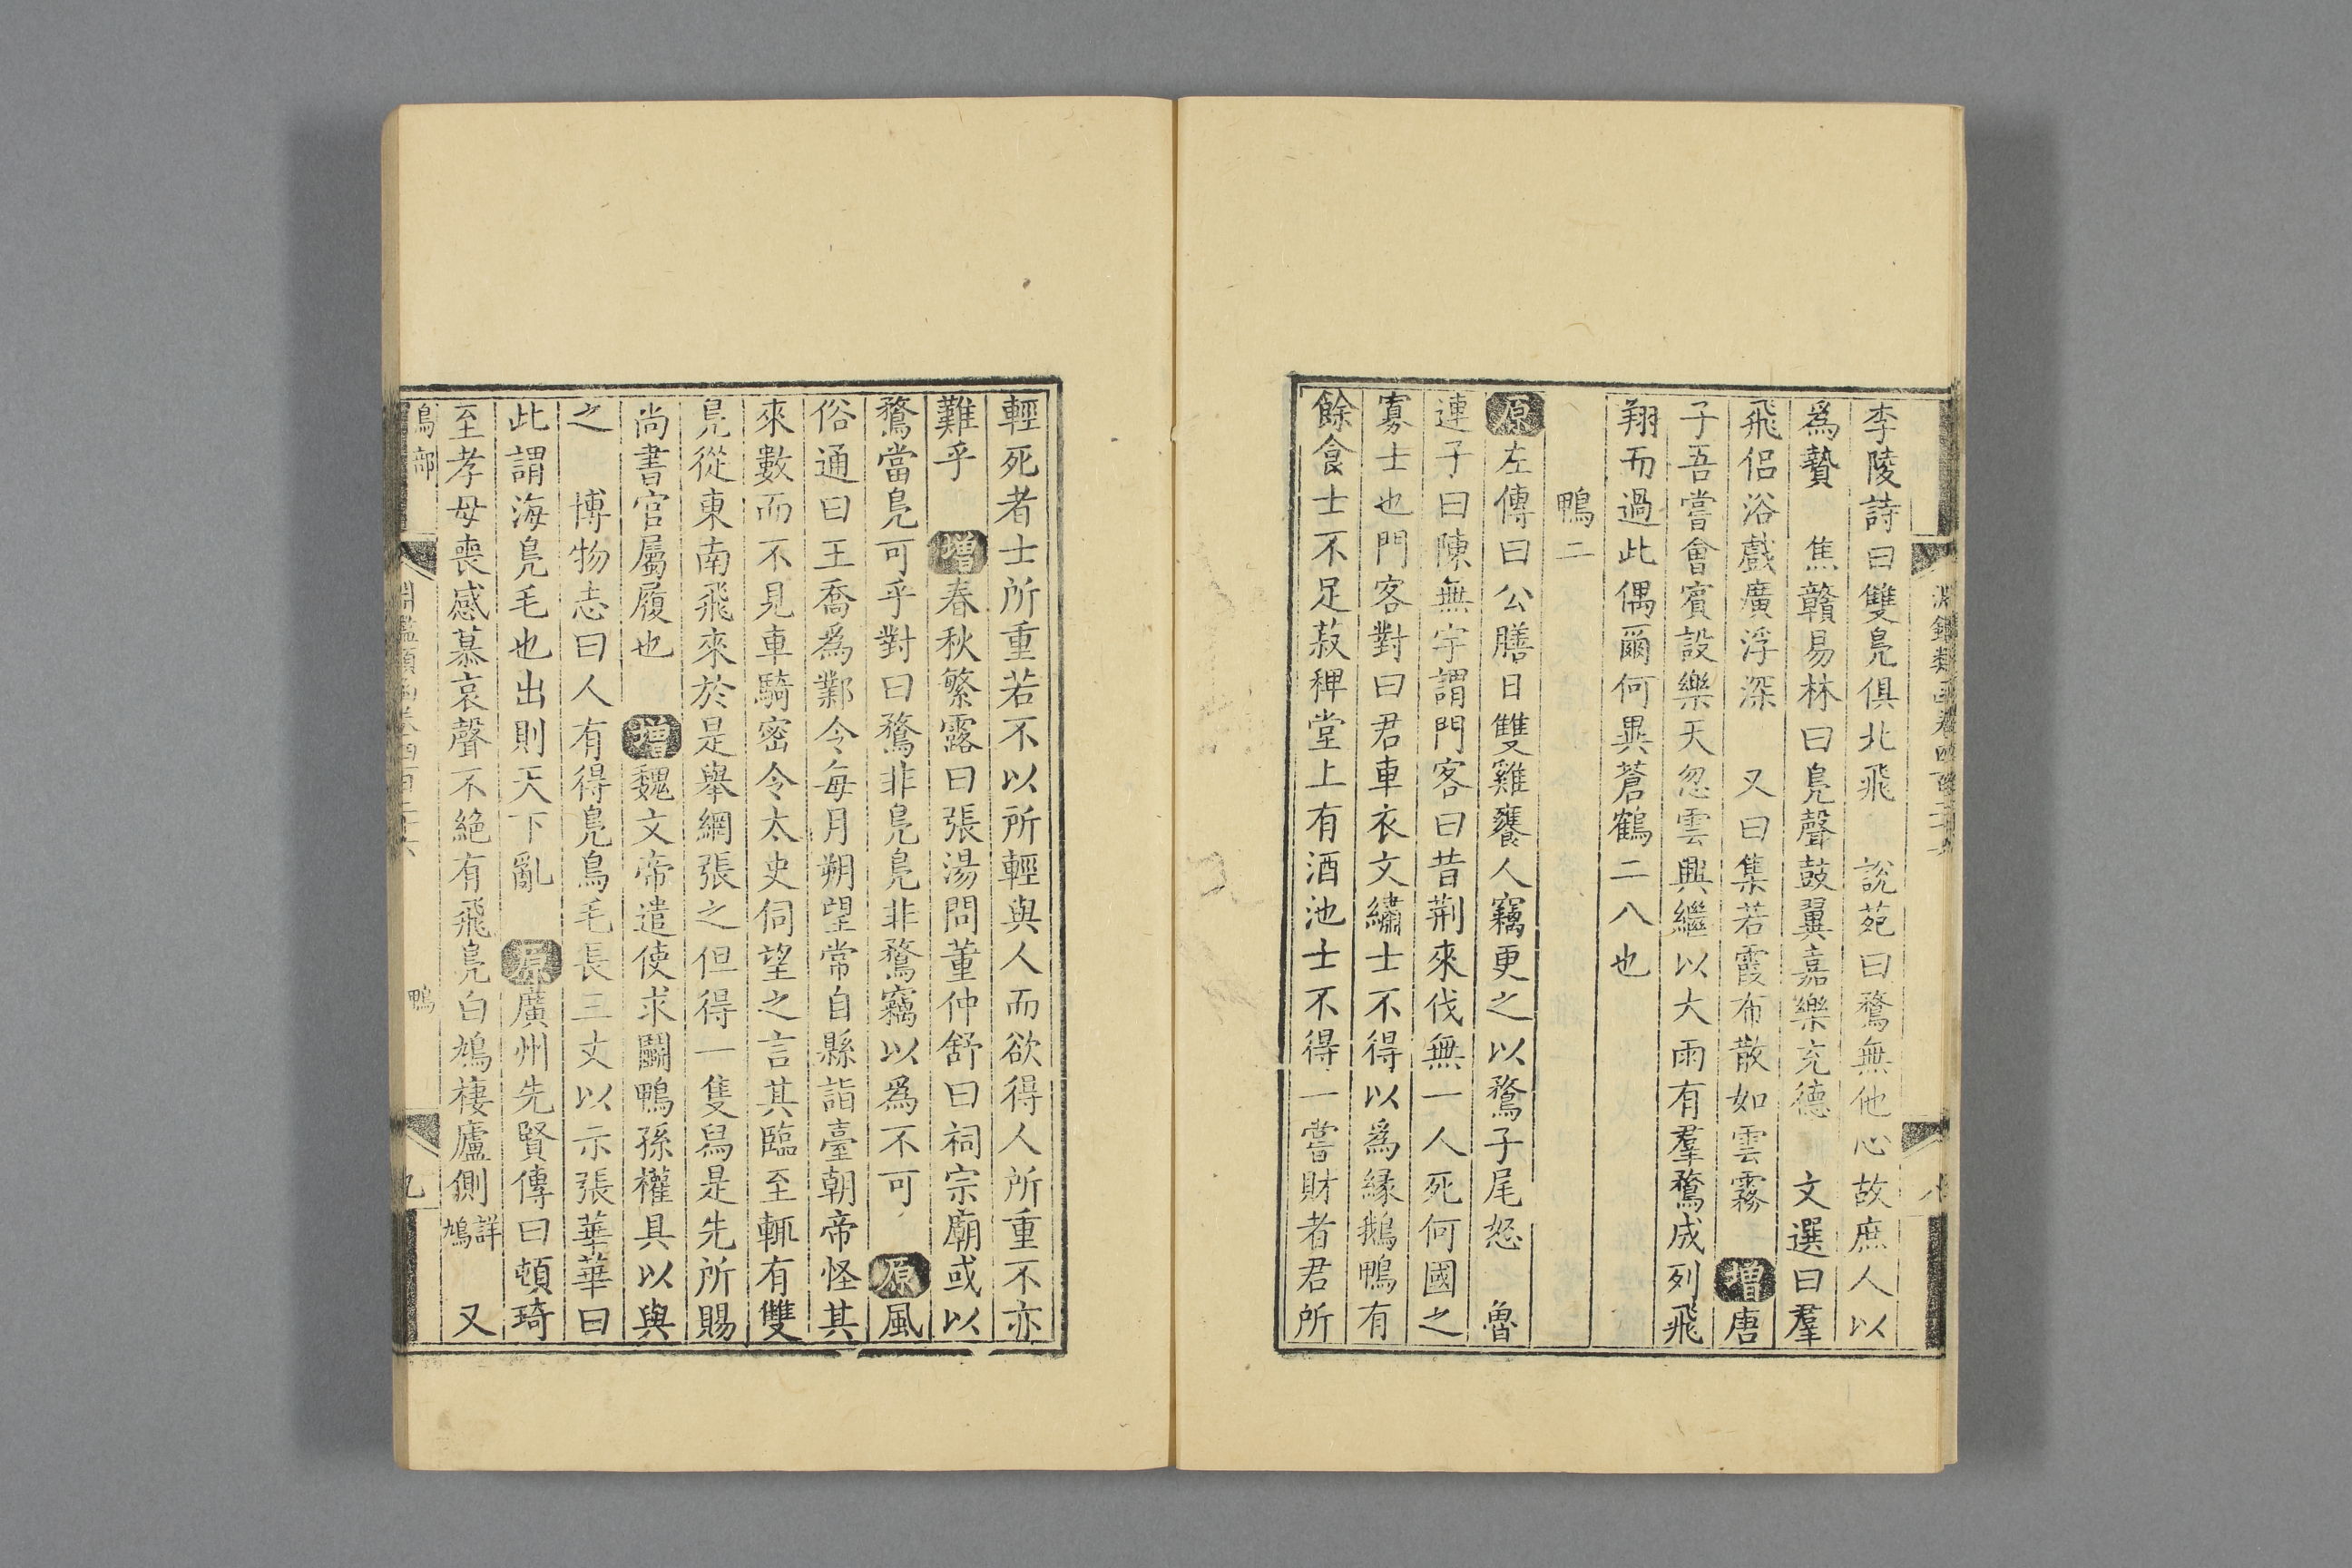 李陵詩曰雙鳧俱北飛　說苑曰鶩無他心故庶人以
爲贄　焦贛易林曰鳧聲鼓翼嘉樂充德　文選曰羣
飛侶浴戲廣浮深　又曰集若霞布散如雲霧　增唐
子吾嘗會賓設樂天忽雲興繼以大雨有羣鶩成列飛
翔而過此偶爾何異蒼鶴二八也
鴨二
原左傳曰公膳日雙雞饔人竊更之以鶩子尾怒　魯
連子曰陳無宇謂門客曰昔荆來伐無一人死何國之
寡士也門客對曰君車衣文繡士不得以為緣鵝鴨有
餘食士不足菽稗堂上有酒池士不得一嘗財者君所
輕死者士所重若不以所輕與人而欲得人所重不亦
難乎　增春秋繁露曰張湯問董仲舒曰祠宗廟或以
鶩當鳧可乎對曰鶩非鳧鳧非鶩竊以爲不可　原風
俗通曰王喬爲鄴令每月朔望常自縣詣臺朝帝怪其
來數而不見車騎密令太史伺望之言其臨至輒有雙
鳧從東南飛來於是舉網張之但得一隻舄是先所賜
尚書官屬履也　增魏文帝遣使求鬭鴨孫權具以與
之　博物志曰人有得鳧鳥毛長三丈以示張華華曰
此謂海鳧毛也出則天下亂　原廣州先賢傳曰頓琦
至孝母喪感慕哀聲不絕有飛鳧白鳩棲廬側詳鳩　又
鳥部　淵鑑類函卷四百二十六　鴨　九